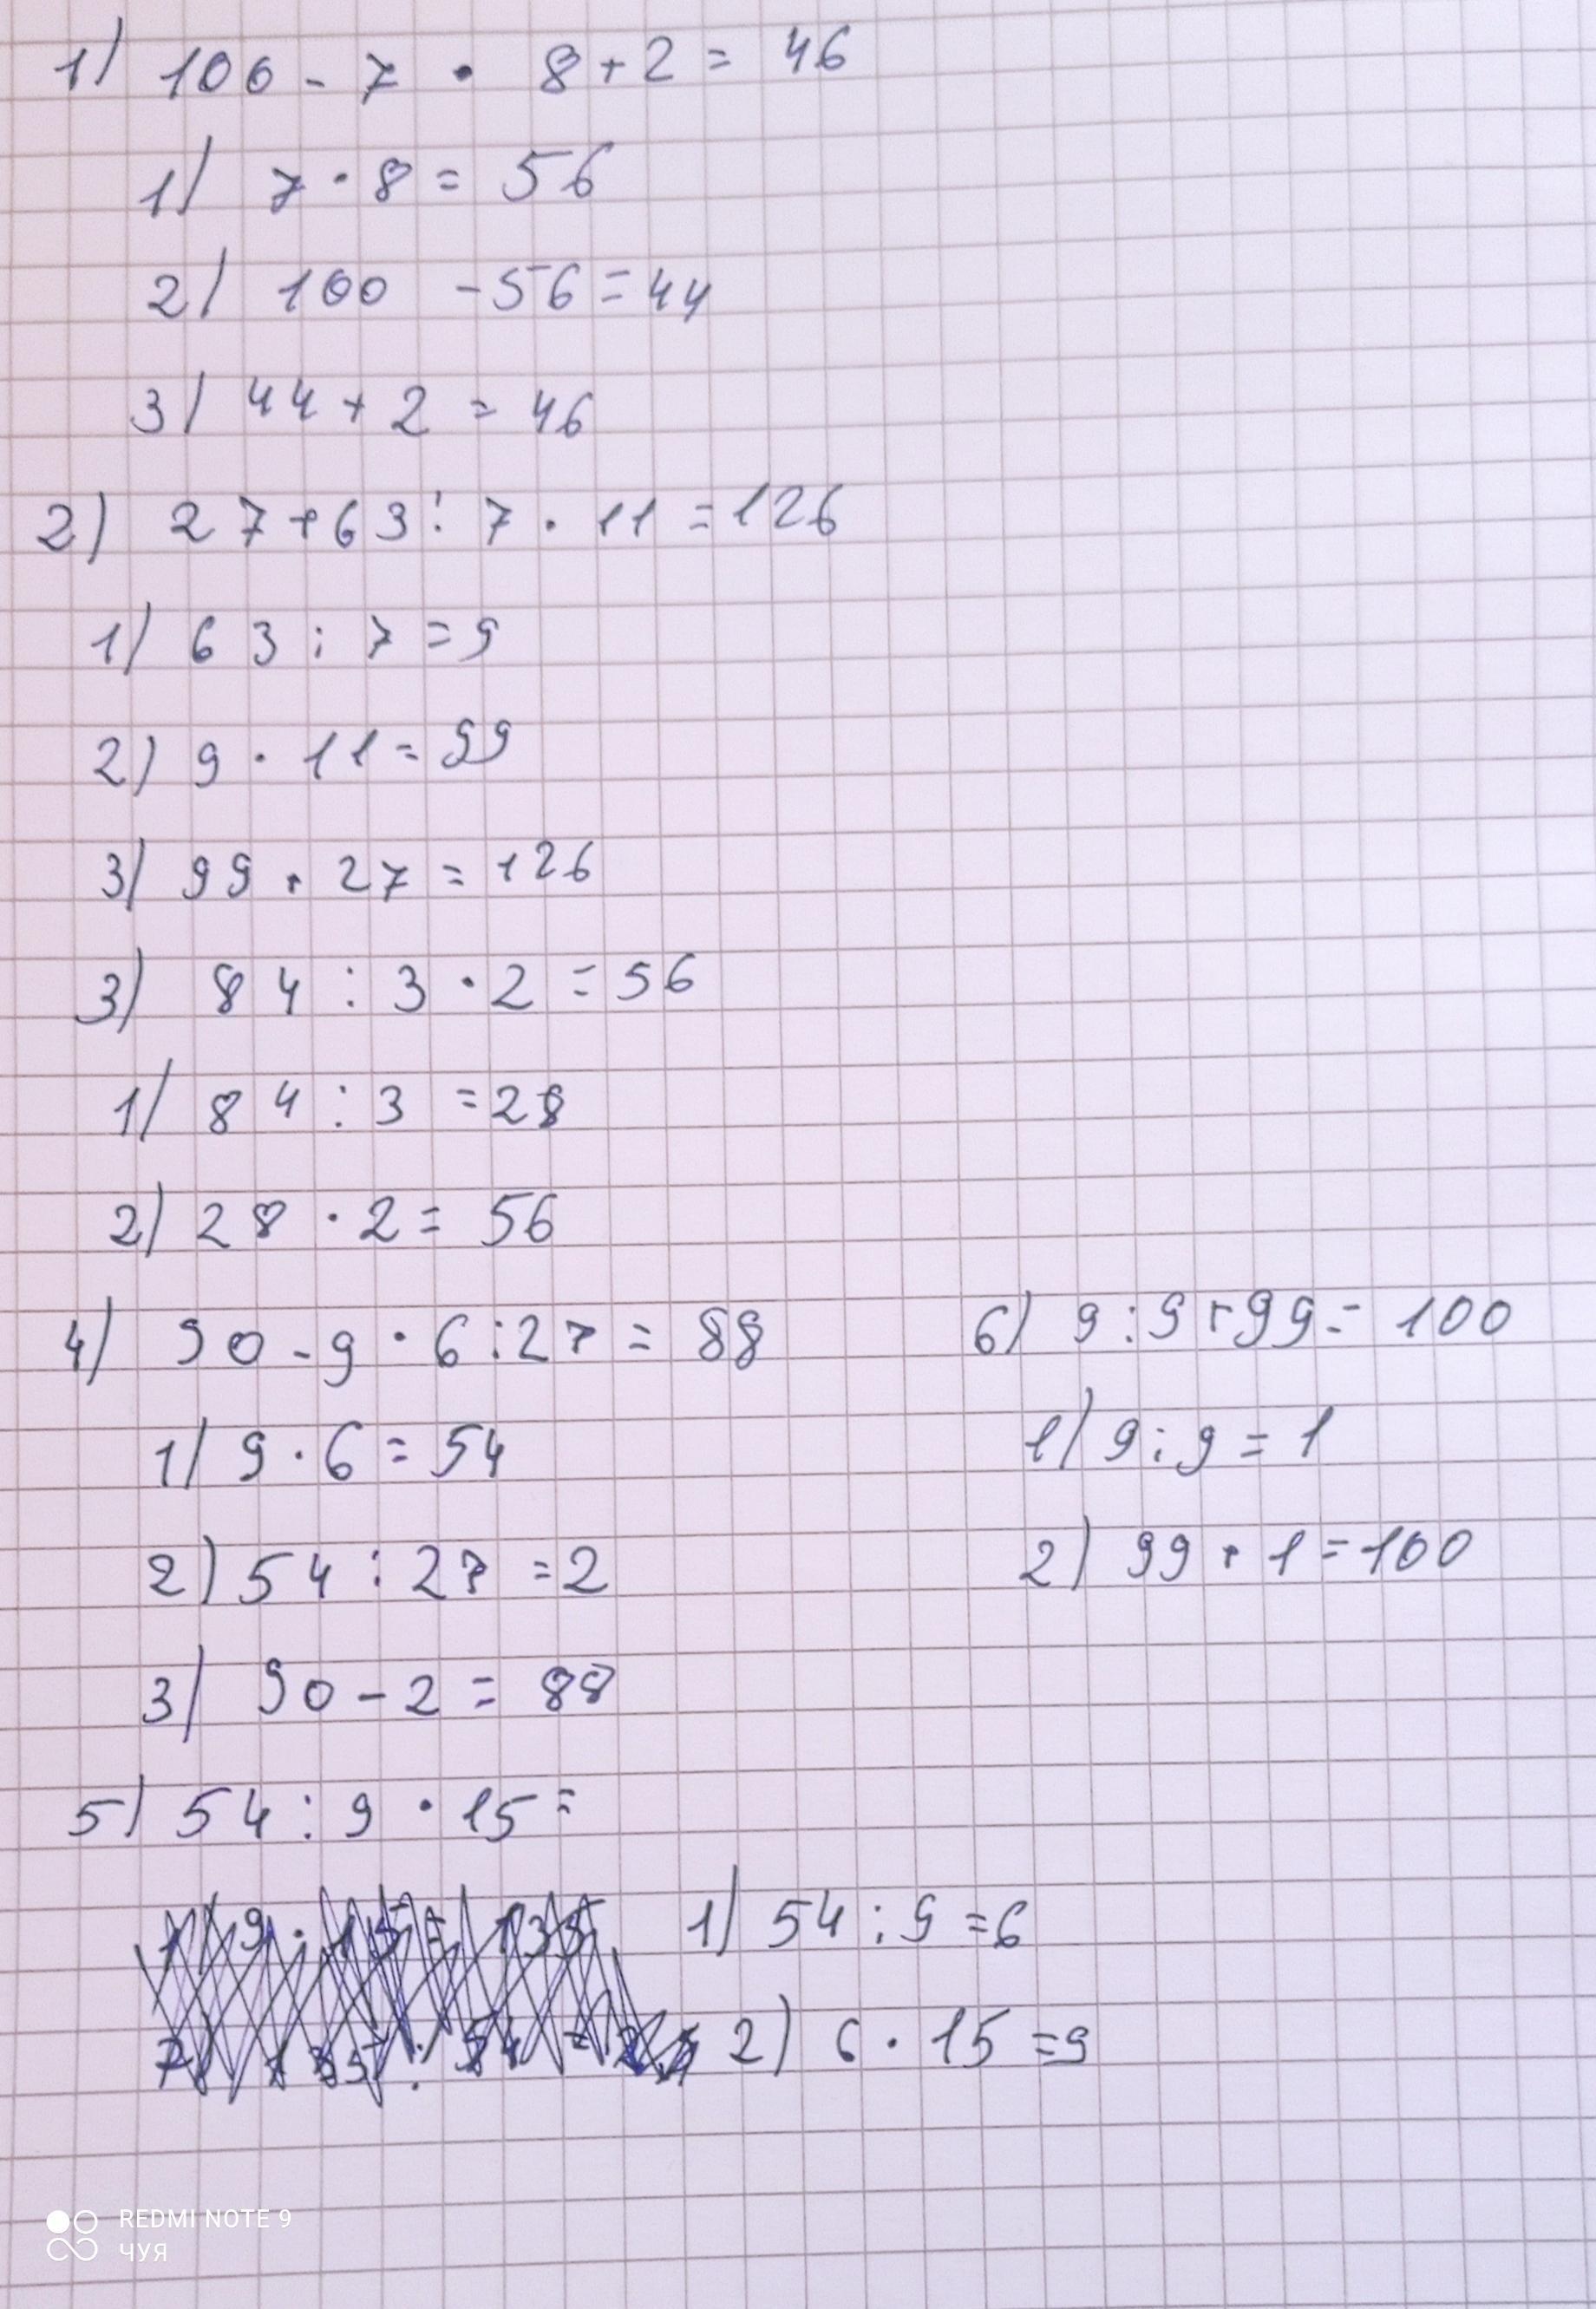 1) 100 - 7 · 8 + 2 = 46
1) 7 · 8 = 56
2) 100 - 56 = 44
3) 44 + 2 = 46
2) 27 + 63 : 7 · 11 = 126
1) 63 : 7 = 9
2) 9 · 11 = 99
3) 99 + 27 = 126
3) 84 : 3 · 2 = 56
1) 84 : 3 = 28
2) 28 · 2 = 56
4) 90 - 9 · 6 : 27 = 88
1) 9 · 6 = 54
2) 54 : 27 = 2
3) 90 - 2 = 88
5) 54 : 9 · 15 =
1) 9 · 15 = 135
1) 54 : 9 = 6
2) 6 · 15 = 9
6) 9 : 9 + 99 = 100
1) 9 : 9 = 1
2) 99 + 1 = 100
REDMI NOTE 9
ЧУЯ